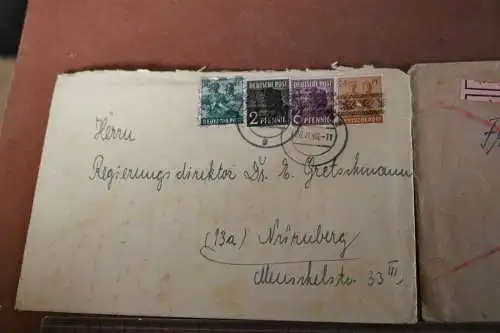 DEUTSCHE POST
2 PFENNIG
DEUTSCHE POST
6 PFENNIG
Herrn
Regierungsdirektor Dr. E. Gretschmann
(13a) Nürnberg
Meuschelstr. 33 III